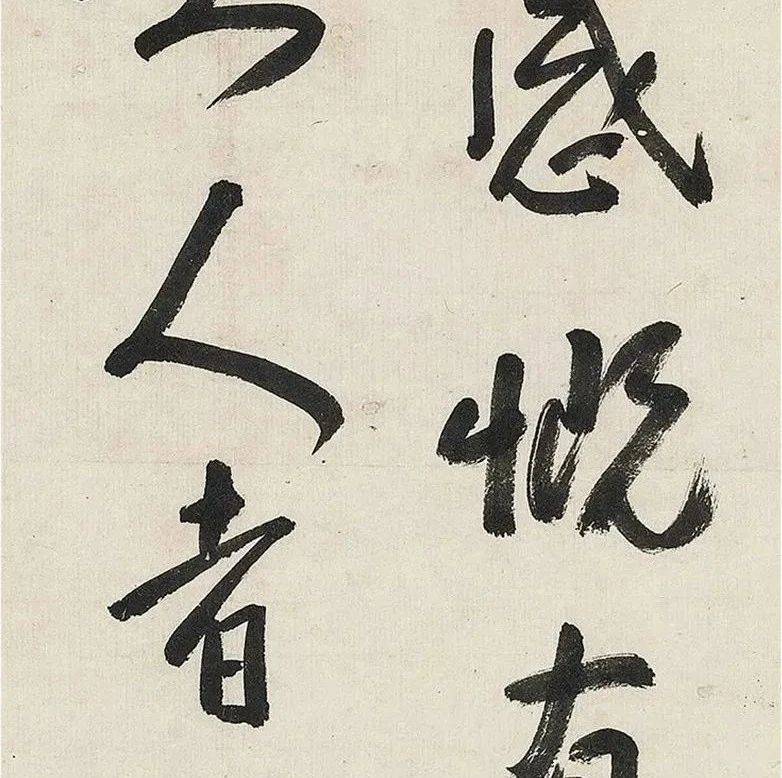 感慨有
人者